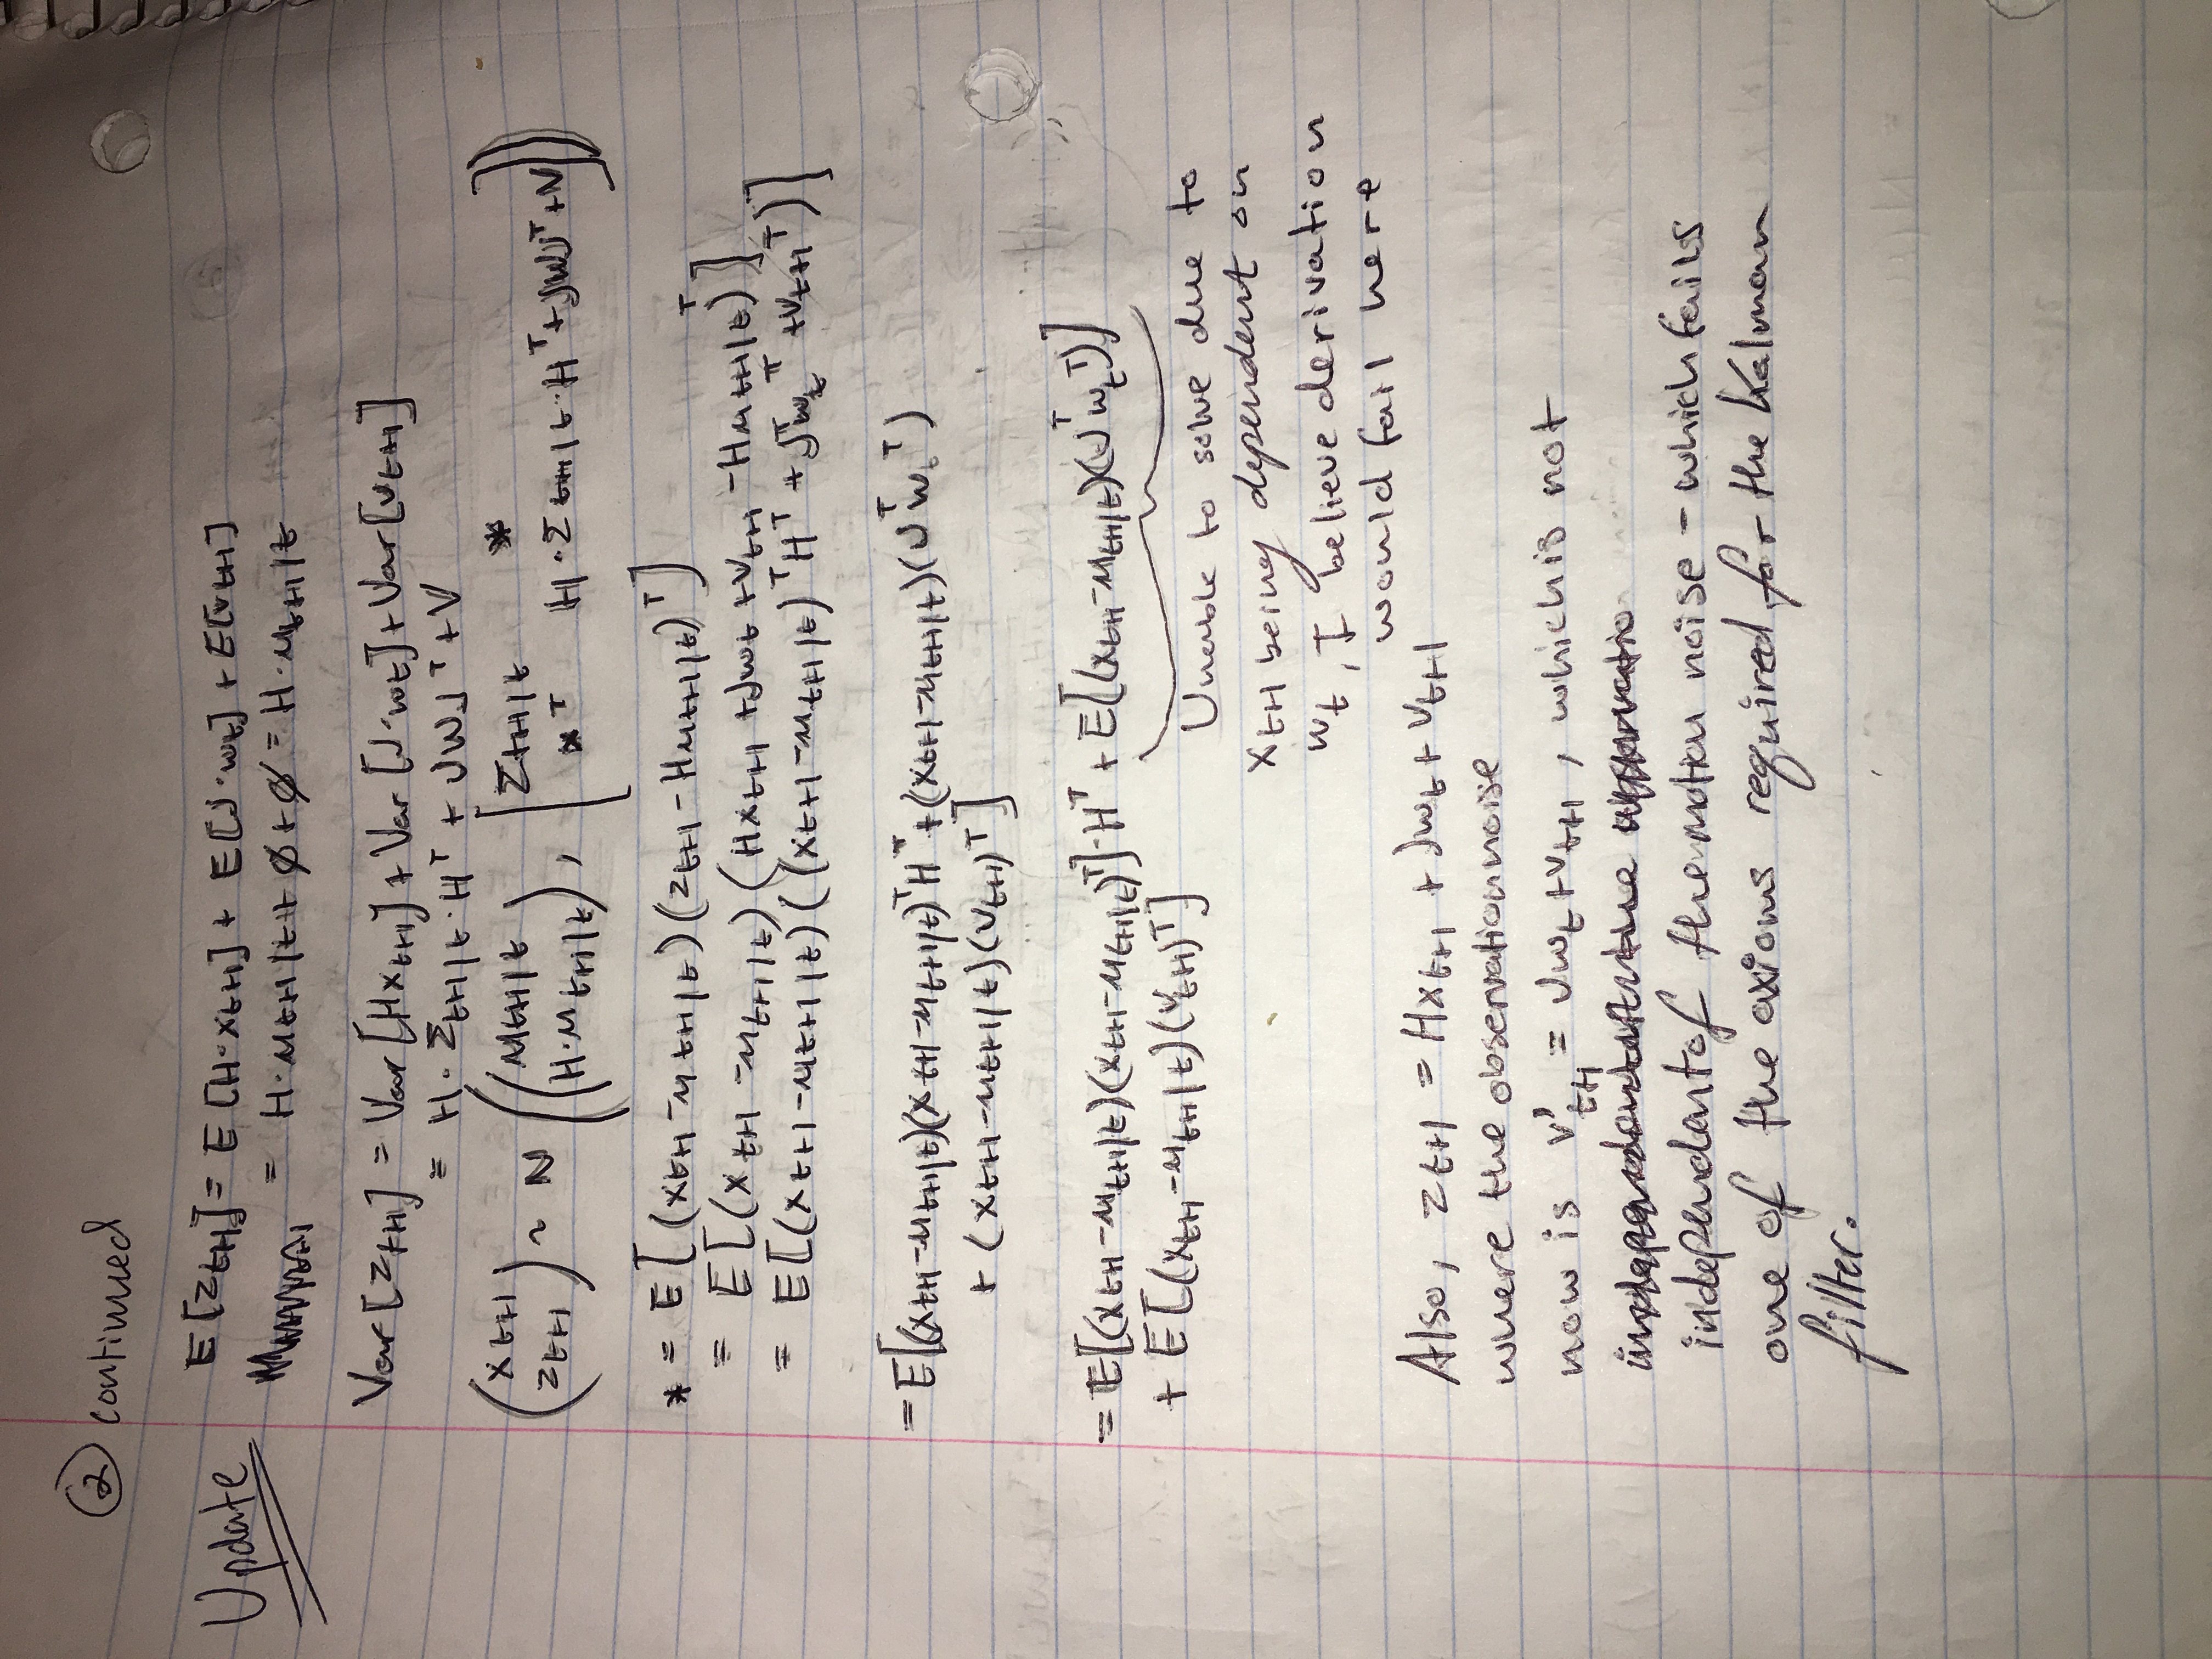 ② continued
Update
E[z_{t+1}] = E[H·x_{t+1}] + E[J·w_t] + E[v_{t+1}]
= H·μ_{t+1|t} + ∅ + ∅ = H·μ_{t+1|t}
Var[z_{t+1}] = Var[Hx_{t+1}] + Var[J·w_t] + Var[v_{t+1}]
= H·Σ_{t+1|t}·H^T + JWJ^T + V
(x_{t+1} z_{t+1}) ~ N((μ_{t+1|t} H·μ_{t+1|t}), [Σ_{t+1|t} * *^T H·Σ_{t+1|t}·H^T + JWJ^T + V])
* = E[(x_{t+1} - μ_{t+1|t})(z_{t+1} - Hμ_{t+1|t})^T]
= E[(x_{t+1} - μ_{t+1|t})(Hx_{t+1} + Jw_t + v_{t+1} - Hμ_{t+1|t})^T]
= E[(x_{t+1} - μ_{t+1|t})((x_{t+1} - μ_{t+1|t})^T H^T + J^T w_t^T + v_{t+1}^T)]
= E[(x_{t+1} - μ_{t+1|t})(x_{t+1} - μ_{t+1|t})^T H^T + (x_{t+1} - μ_{t+1|t})(J^T w_t^T)
+ (x_{t+1} - μ_{t+1|t})(v_{t+1})^T]
= E[(x_{t+1} - μ_{t+1|t})(x_{t+1} - μ_{t+1|t})^T]·H^T + E[(x_{t+1} - μ_{t+1|t})(J^T w_t^T)]
+ E[(x_{t+1} - μ_{t+1|t})(v_{t+1})^T]
Unable to solve due to
x_{t+1} being dependent on
w_t, I believe derivation
would fail here
Also, z_{t+1} = Hx_{t+1} + Jw_t + v_{t+1}
where the observation noise
now is v'_{t+1} = Jw_t + v_{t+1}, which is not
independent of the motion noise - which fails
one of the axioms required for the Kalman
filter.